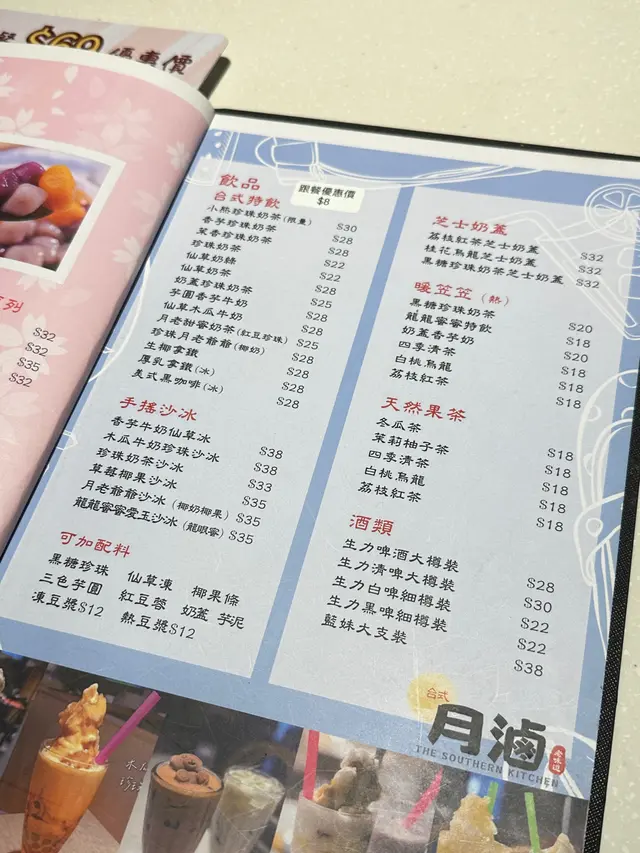 $60 優惠價
系列
$32
$32
$35
$32
飲品
台式特飲
跟餐優惠價
$8
小熱珍珠奶茶(限量) $30
香芋珍珠奶茶 $28
茉香珍珠奶茶 $28
珍珠奶茶 $22
仙草奶綠 $22
仙草奶茶 $28
奶蓋珍珠奶茶 $25
芋圓香芋牛奶 $28
仙草木瓜牛奶
月老甜蜜奶茶(紅豆珍珠) $25
珍珠月老爺爺(椰奶) $28
生椰拿鐵 $28
厚乳拿鐵(冰) $28
美式黑咖啡(冰) $28
手搖沙冰
香芋牛奶仙草冰 $38
木瓜牛奶珍珠沙冰 $38
珍珠奶茶沙冰 $33
草莓椰果沙冰 $35
月老爺爺沙冰(椰奶椰果) $35
龍龍蜜蜜愛玉沙冰(龍眼蜜) $35
可加配料
黑糖珍珠 仙草凍 椰果條
三色芋圓 紅豆蓉 奶蓋 芋泥
凍豆漿$12 熱豆漿$12
芝士奶蓋
荔枝紅茶芝士奶蓋 $32
桂花烏龍芝士奶蓋 $32
黑糖珍珠奶茶芝士奶蓋 $32
暖笠笠(熱)
黑糖珍珠奶茶 $20
龍龍蜜蜜特飲 $18
奶蓋香芋奶 $20
四季清茶 $18
白桃烏龍 $18
荔枝紅茶 $18
天然果茶
冬瓜茶 $18
茉莉柚子茶 $18
四季清茶 $18
白桃烏龍 $18
荔枝紅茶 $18
酒類
生力啤酒大樽裝 $28
生力清啤大樽裝 $30
生力白啤細樽裝 $22
生力黑啤細樽裝 $22
藍妹大支裝 $38
台式
月滷
老味道
THE SOUTHERN KITCHEN